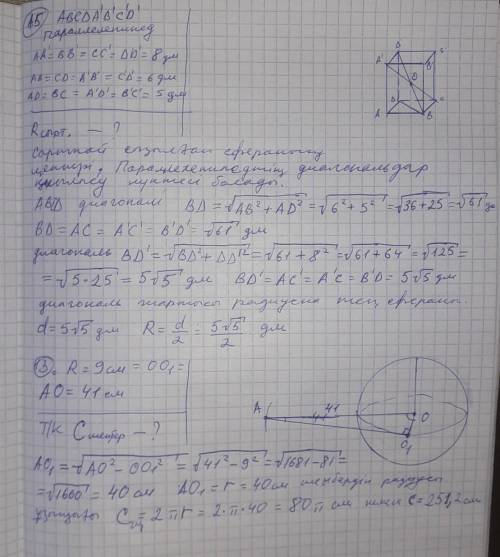 А5 ABCDA'B'C'D'
параллелепипед
AA'=BB'=CC'=DD'=8 дм
AB=CD=A'B'=C'D'=6 дм
AD=BC=A'D'=B'C'=5 дм
A' D' C'
B'
O
D C
A B
R - ?
сырттай сызылған сфераның
центрі, Параллелепипедтің диагональдар
қиылысу нүктесі болады.
ABD диагонал BD = √AB²+AD² = √6²+5² = √36+25 = √61 дм
BD=AC=A'C'=B'D'=√61 дм
диагональ BD'=√BD²+DD'² = √61+8² = √61+64 = √125 =
= √5·25 = 5√5 дм BD'=AC'=A'C=B'D=5√5 дм
диагональ жартысы радиусна тең сфераны.
d=5√5 дм R = d/2 = 5√5/2 дм
3. R=9см=OO₁=
AO=41см
A 41 41 O
O₁
Т/к С шеңбер - ?
AO₁=√AO²-OO₁² = √41²-9² = √1681-81 =
=√1600 = 40 см AO₁=r=40см шеңбердің радиусы
C = 2πr = 2·π·40 = 80π см C=251,2см